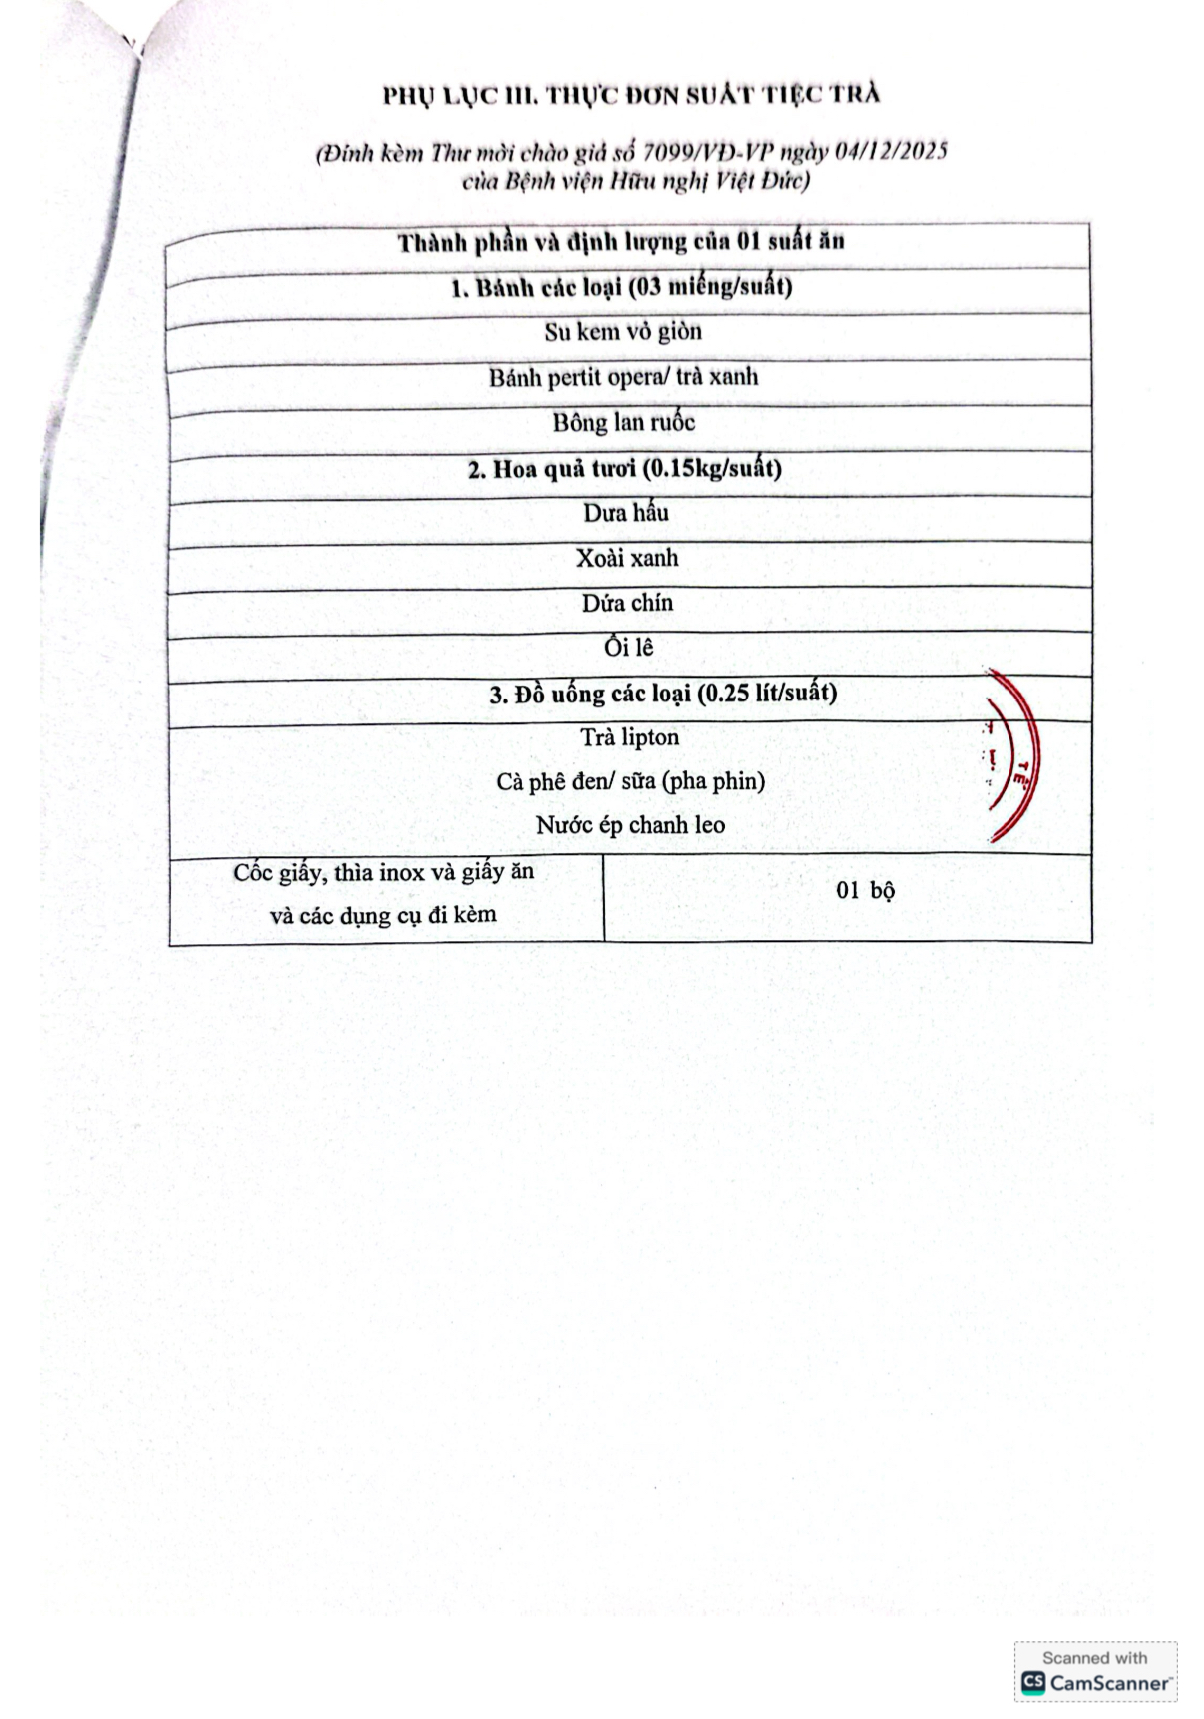 PHỤ LỤC III. THỰC ĐƠN SUẤT TIỆC TRÀ
(Đính kèm Thư mời chào giá số 7099/VĐ-VP ngày 04/12/2025
của Bệnh viện Hữu nghị Việt Đức)
Thành phần và định lượng của 01 suất ăn
1. Bánh các loại (03 miếng/suất)
Su kem vỏ giòn
Bánh pertit opera/ trà xanh
Bông lan ruốc
2. Hoa quả tươi (0.15kg/suất)
Dưa hấu
Xoài xanh
Dứa chín
Ổi lê
3. Đồ uống các loại (0.25 lít/suất)
Trà lipton
Cà phê đen/ sữa (pha phin)
Nước ép chanh leo
TẾ
Cốc giấy, thìa inox và giấy ăn
và các dụng cụ đi kèm
01 bộ
Scanned with
CS CamScanner